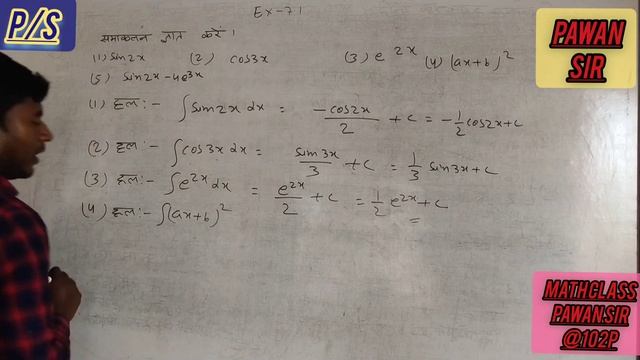 P/S
Ex-7.1
PAWAN
SIR
समाकलन ज्ञात करें।
(1) sin2x (2) cos3x (3) e^2x (4) (ax+b)^2
(5) sin2x-4e^3x
(1) हल:- ∫sin2x dx = -cos2x/2 + c = -1/2 cos2x+c
(2) हल:- ∫cos3x dx = sin3x/3 + c = 1/3 sin3x+c
(3) हल:- ∫e^2x dx = e^2x/2 + c = 1/2 e^2x+c
(4) हल:- ∫(ax+b)^2 =
MATHCLASS
PAWANSIR
@102P